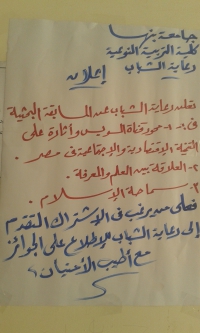 جامعة بنها
كلية التربية النوعية
رعاية الشباب
إعلان
تعلن رعاية الشباب عن المسابقة البحثية
فى :- ١- محور قناة السويس وآثارة على
التنمية الإقتصادية والإجتماعية فى مصر .
٢- العلاقة بين العلم والمعرفة .
٣- سماحة الإسلام .
فعلى من يرغب فى الإشتراك التقدم
إلى رعاية الشباب للإطلاع على الجوائز
مع أطيب الأمنيات